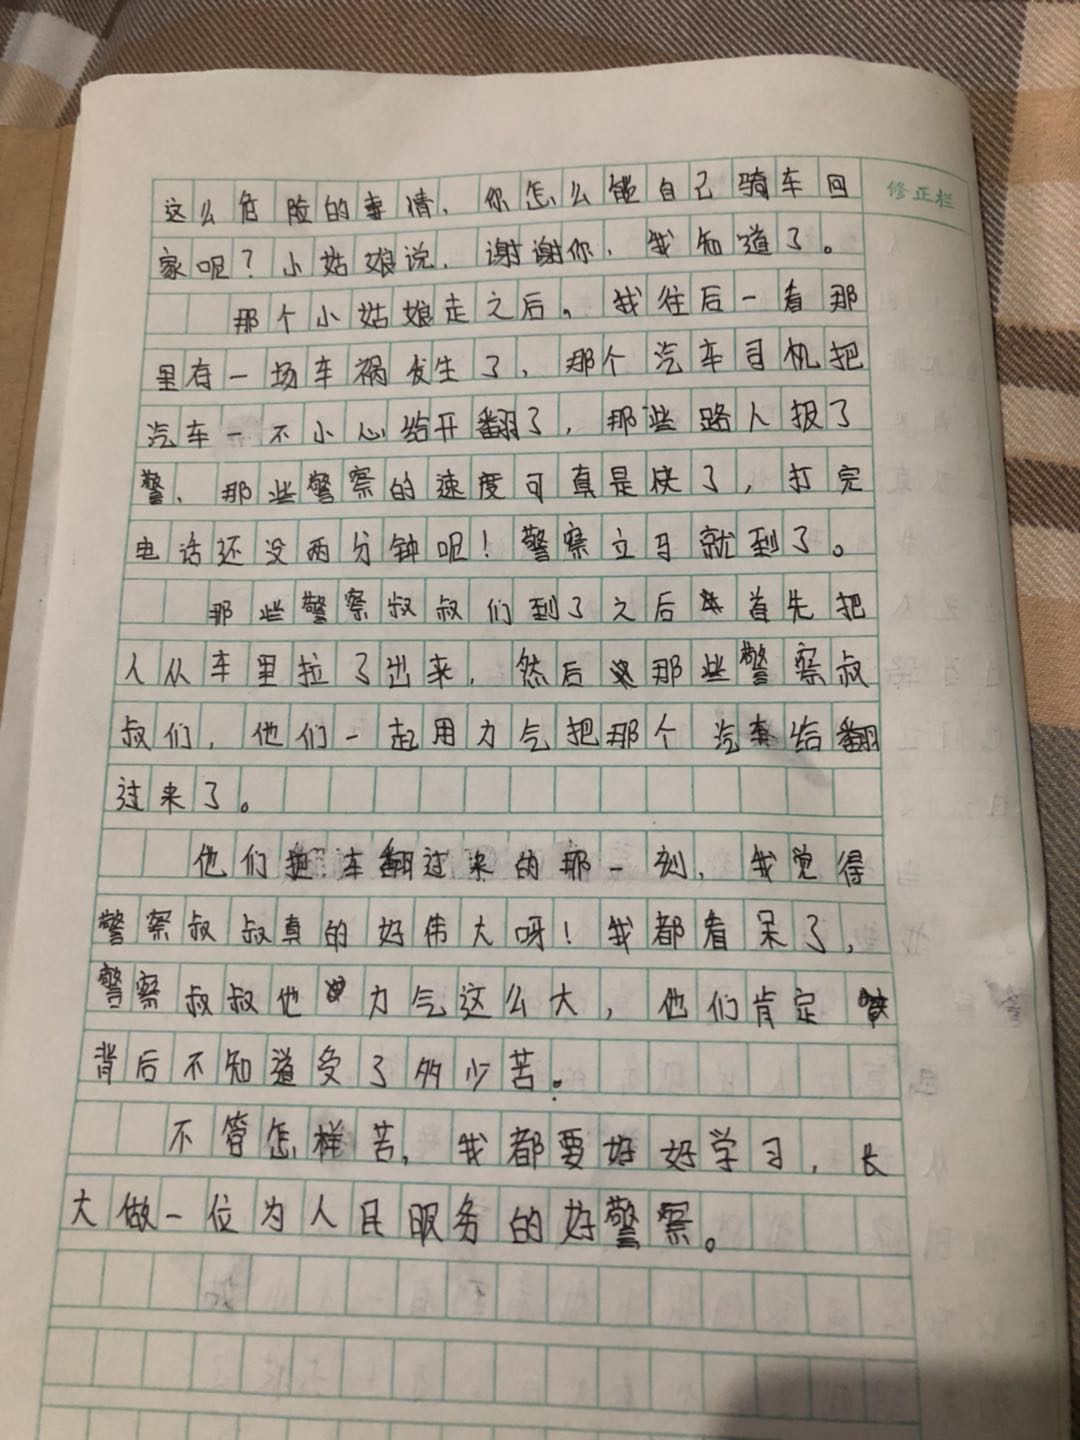 修正栏
这么危险的事情，你怎么能自己骑车回
家呢？小姑娘说，谢谢你，我知道了。
那个小姑娘走之后。我往后一看那
里有一场车祸发生了，那个汽车司机把
汽车一不小心给开翻了，那些路人报了
警、那些警察的速度可真是快了，打完
电话还没两分钟呢！警察立马就到了。
那些警察叔叔们到了之后首先把
人从车里拉了出来，然后那些警察叔
叔们，他们一起用力气把那个汽车给翻
过来了。
他们把车翻过来的那一刻，我觉得
警察叔叔真的好伟大呀！我都看呆了，
警察叔叔他力气这么大，他们肯定
背后不知道受了多少苦。
不管怎样苦，我都要好好学习，长
大做一位为人民服务的好警察。